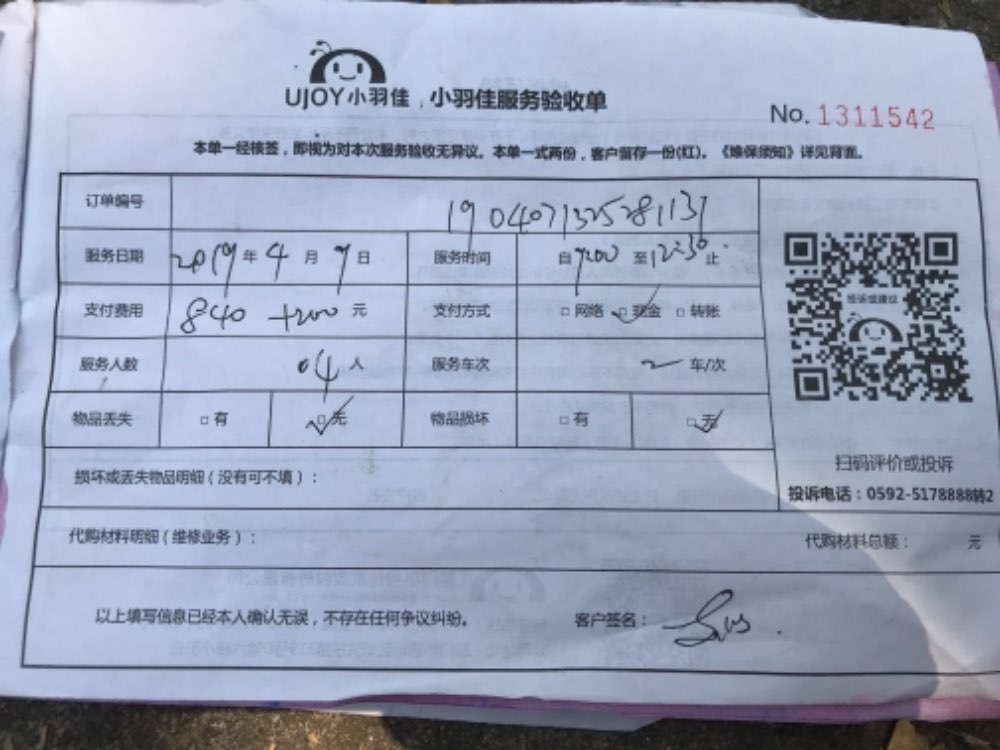 UJOY小羽佳,小羽佳服务验收单
No.1311542
本单一经核签，即视为对本次服务验收无异议。本单一式两份，客户留存一份(红)。《维保须知》详见背面。
订单编号 1904071325281131
服务日期 2019年4月9日 服务时间 自 至12:30止
支付费用 840 +200元 支付方式 □网络 □现金 □转账
服务人数 04人 服务车次 二 车/次
物品丢失 □有 □无 物品损坏 □有 □无
投诉或建议
扫码评价或投诉
投诉电话：0592-5178888转2
损坏或丢失物品明细（没有可不填）：
代购材料明细（维修业务）： 代购材料总额： 元
以上填写信息已经本人确认无误，不存在任何争议纠纷。 客户签名：